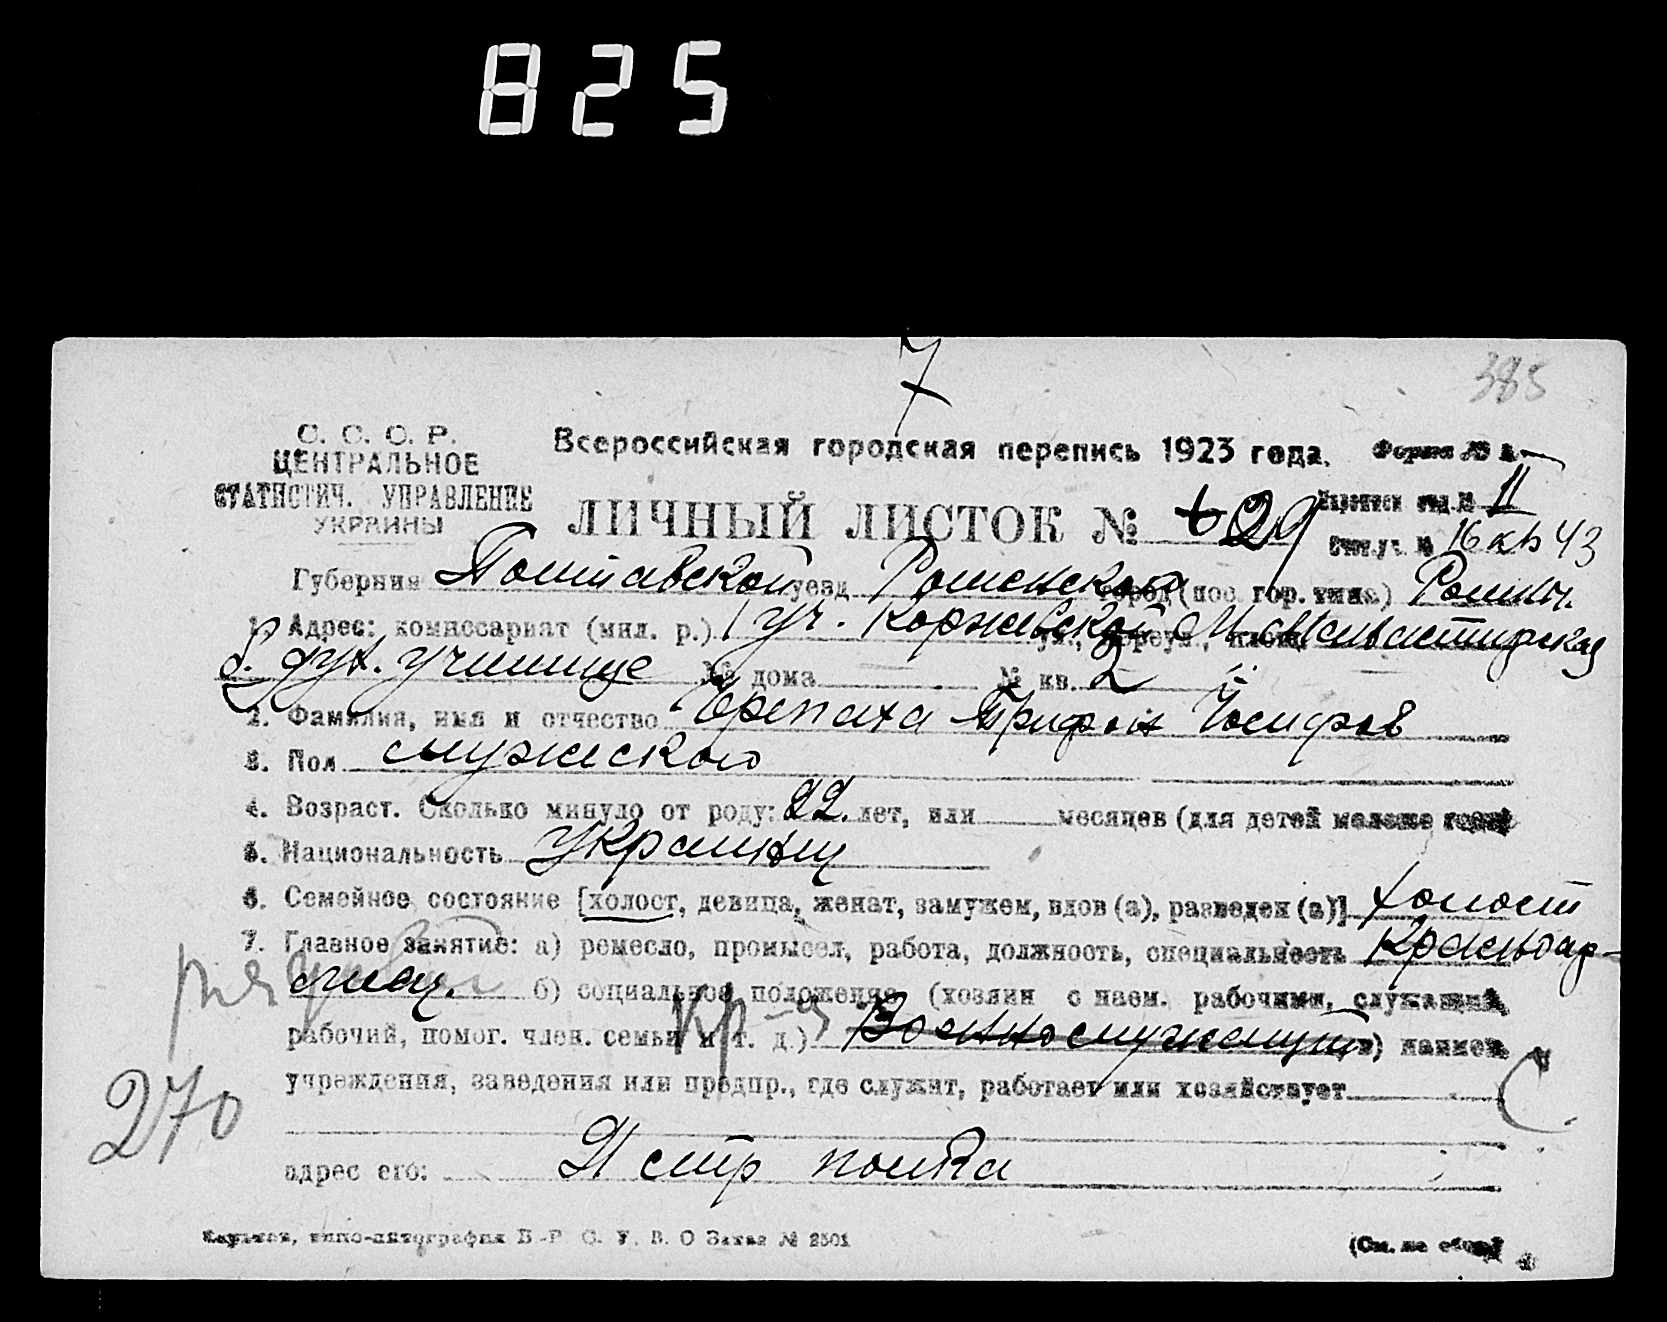 825
7
385
С. С. С. Р.
ЦЕНТРАЛЬНОЕ
СТАТИСТИЧ. УПРАВЛЕНИЕ
УКРАИНЫ
Всероссийская городская перепись 1923 года.
Форма №
ЛИЧНЫЙ ЛИСТОК № 29
№ 11
№ 16 кв 43
Губерния Полтавской уезд Роменской город (пос. гор. типа) Ромны.
1. Адрес: комиссариат (мил. р.) 1 уч. Коржевской
б. дух. училище № дома № кв. 2
2. Фамилия, имя и отчество Черепаха Трифон Иосифов
3. Пол мужеского
4. Возраст. Сколько минуло от роду: 22 лет, или месяцев (для детей моложе года)
5. Национальность украинец
6. Семейное состояние [холост, девица, женат, замужем, вдов (а), разведен (а)] холост
7. Главное занятие: а) ремесло, промысел, работа, должность, специальность Красноар-
меец. б) социальное положение (хозяин с наем. рабочими, служащий,
рядовой
рабочий, помог. член. семьи и т. д.) Военнослужащий в) наимен.
кр-я
учреждения, заведения или предпр., где служит, работает или хозяйствует
С
270
адрес его: стр полка
Харьков, типо-литография В.-Р. С. У. В. О Заказ № 2501
(См. на обор.)